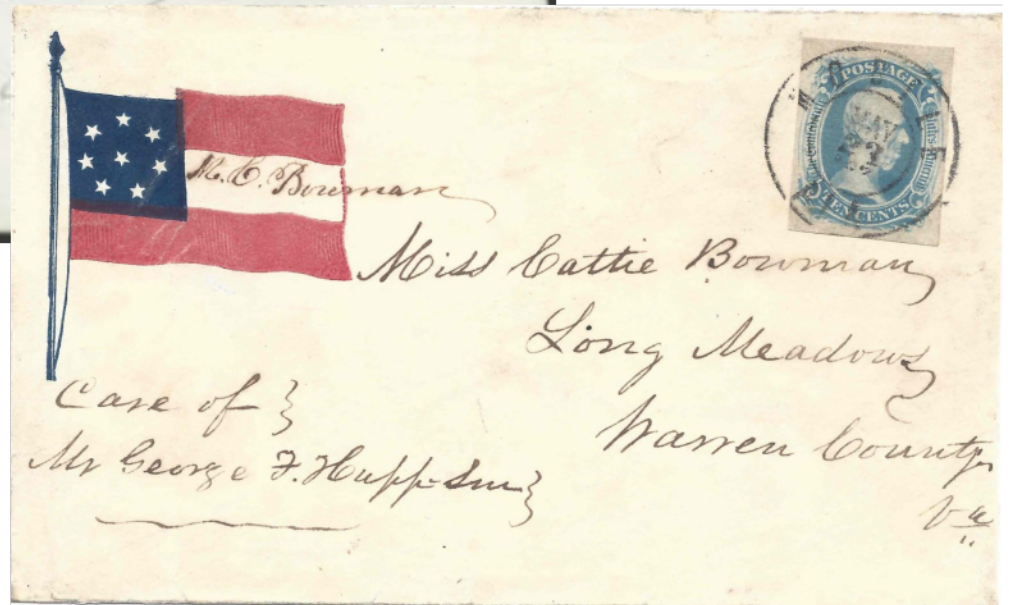 M. C. Bowman
POSTAGE
TEN CENTS
MOBILE
MAY
23
Miss Cattie Bowman
Long Meadows
Warren County
Va
Care of }
Mr George F. Hupp Snr }